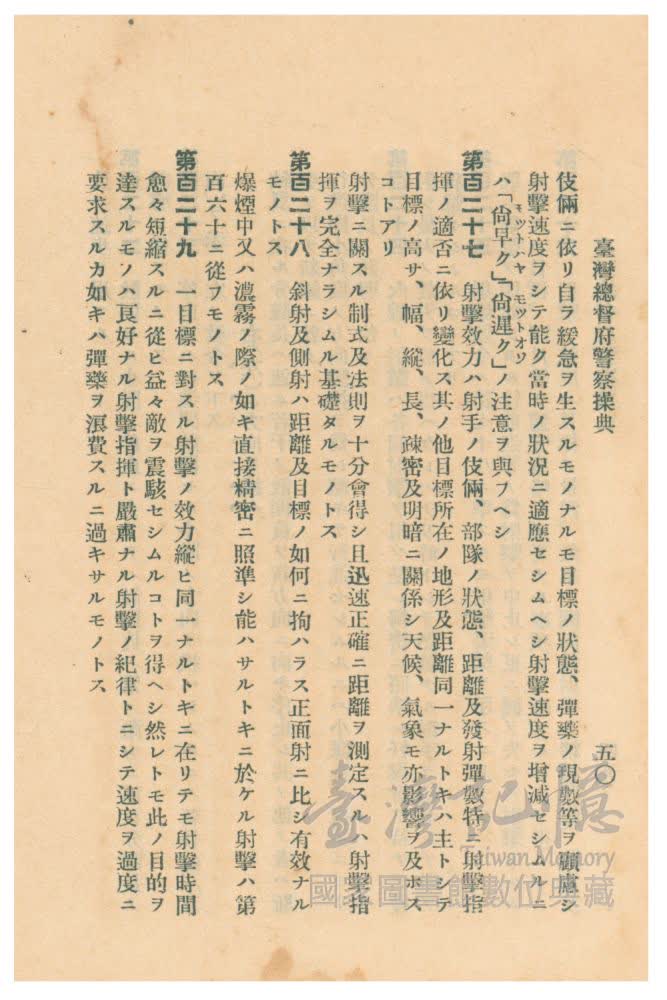 臺灣總督府警察操典
五〇
伎倆ニ依リ自ラ緩急ヲ生スルモノナルモ目標ノ狀態、彈藥ノ現數等ヲ顧慮シ
射擊速度ヲシテ能ク當時ノ狀況ニ適應セシムヘシ射擊速度ヲ增減セシムルニ
モツトハヤ モツトオソ
ハ「尙早ク」「尙遲ク」ノ注意ヲ與フヘシ
第百二十七 射擊效力ハ射手ノ伎倆、部隊ノ狀態、距離及發射彈數特ニ射擊指
揮ノ適否ニ依リ變化ス其ノ他目標所在ノ地形及距離同一ナルトキハ主トシテ
目標ノ高サ、幅、縱、長、疎密及明暗ニ關係シ天候、氣象モ亦影響ヲ及ホス
コトアリ
射擊ニ關スル制式及法則ヲ十分會得シ且迅速正確ニ距離ヲ測定スルハ射擊指
揮ヲ完全ナラシムル基礎タルモノトス
第百二十八 斜射及側射ハ距離及目標ノ如何ニ拘ハラス正面射ニ比シ有效ナル
モノトス
爆煙中又ハ濃霧ノ際ノ如キ直接精密ニ照準シ能ハサルトキニ於ケル射擊ハ第
百六十ニ從フモノトス
第百二十九 一目標ニ對スル射擊ノ效力縱ヒ同一ナルトキニ在リテモ射擊時間
愈々短縮スルニ從ヒ益々敵ヲ震駭セシムルコトヲ得ヘシ然レトモ此ノ目的ヲ
達スルモノハ良好ナル射擊指揮ト嚴肅ナル射擊ノ紀律トニシテ速度ヲ過度ニ
要求スルカ如キハ彈藥ヲ濵費スルニ過キサルモノトス
臺灣記憶
Taiwan Memory
國家圖書館數位典藏